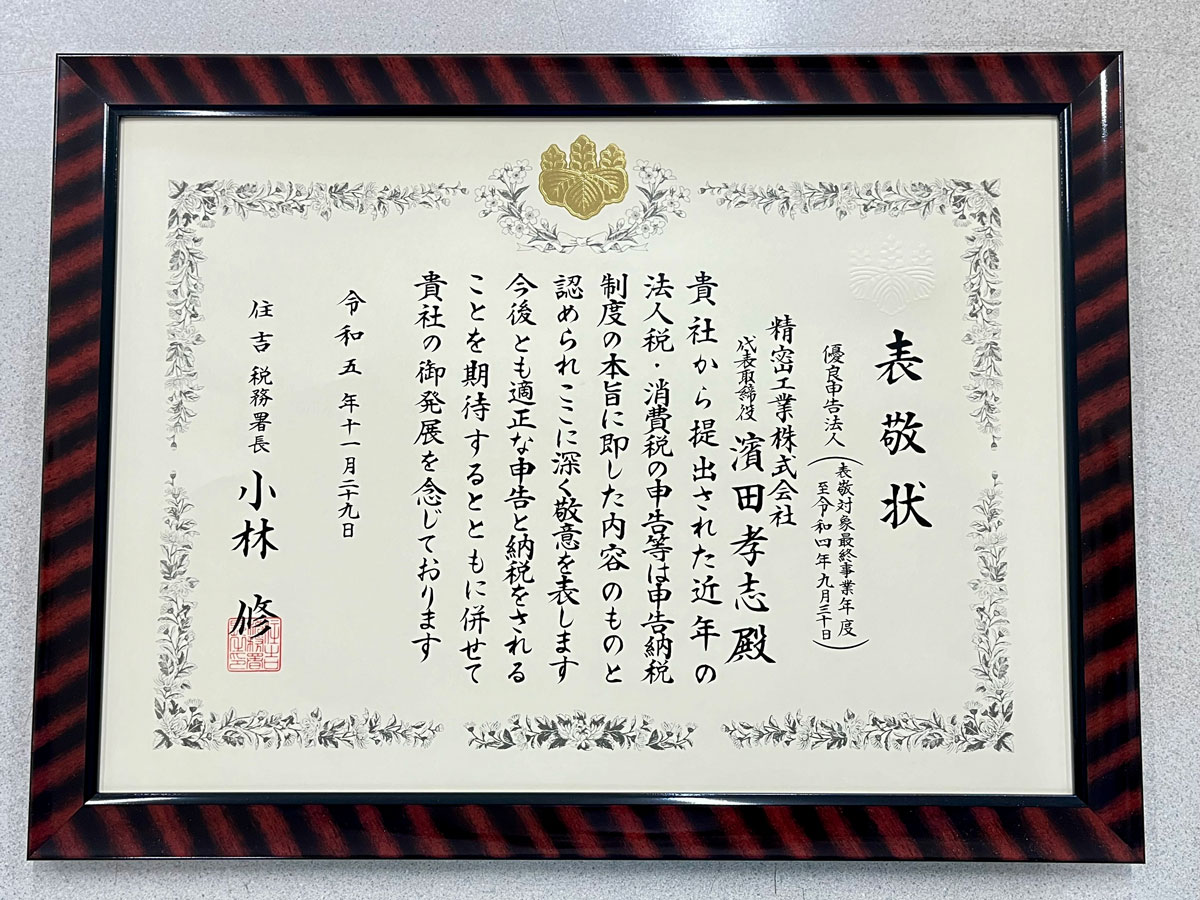 表敬状
優良申告法人
(表敬対象最終事業年度
至令和四年九月三十日)
精密工業株式会社
代表取締役 濱田孝志殿
貴社から提出された近年の
法人税・消費税の申告等は申告納税
制度の本旨に即した内容のものと
認められここに深く敬意を表します
今後とも適正な申告と納税をされる
ことを期待するとともに併せて
貴社の御発展を念じております
令和五年十一月二十九日
住吉税務署長 小林 修